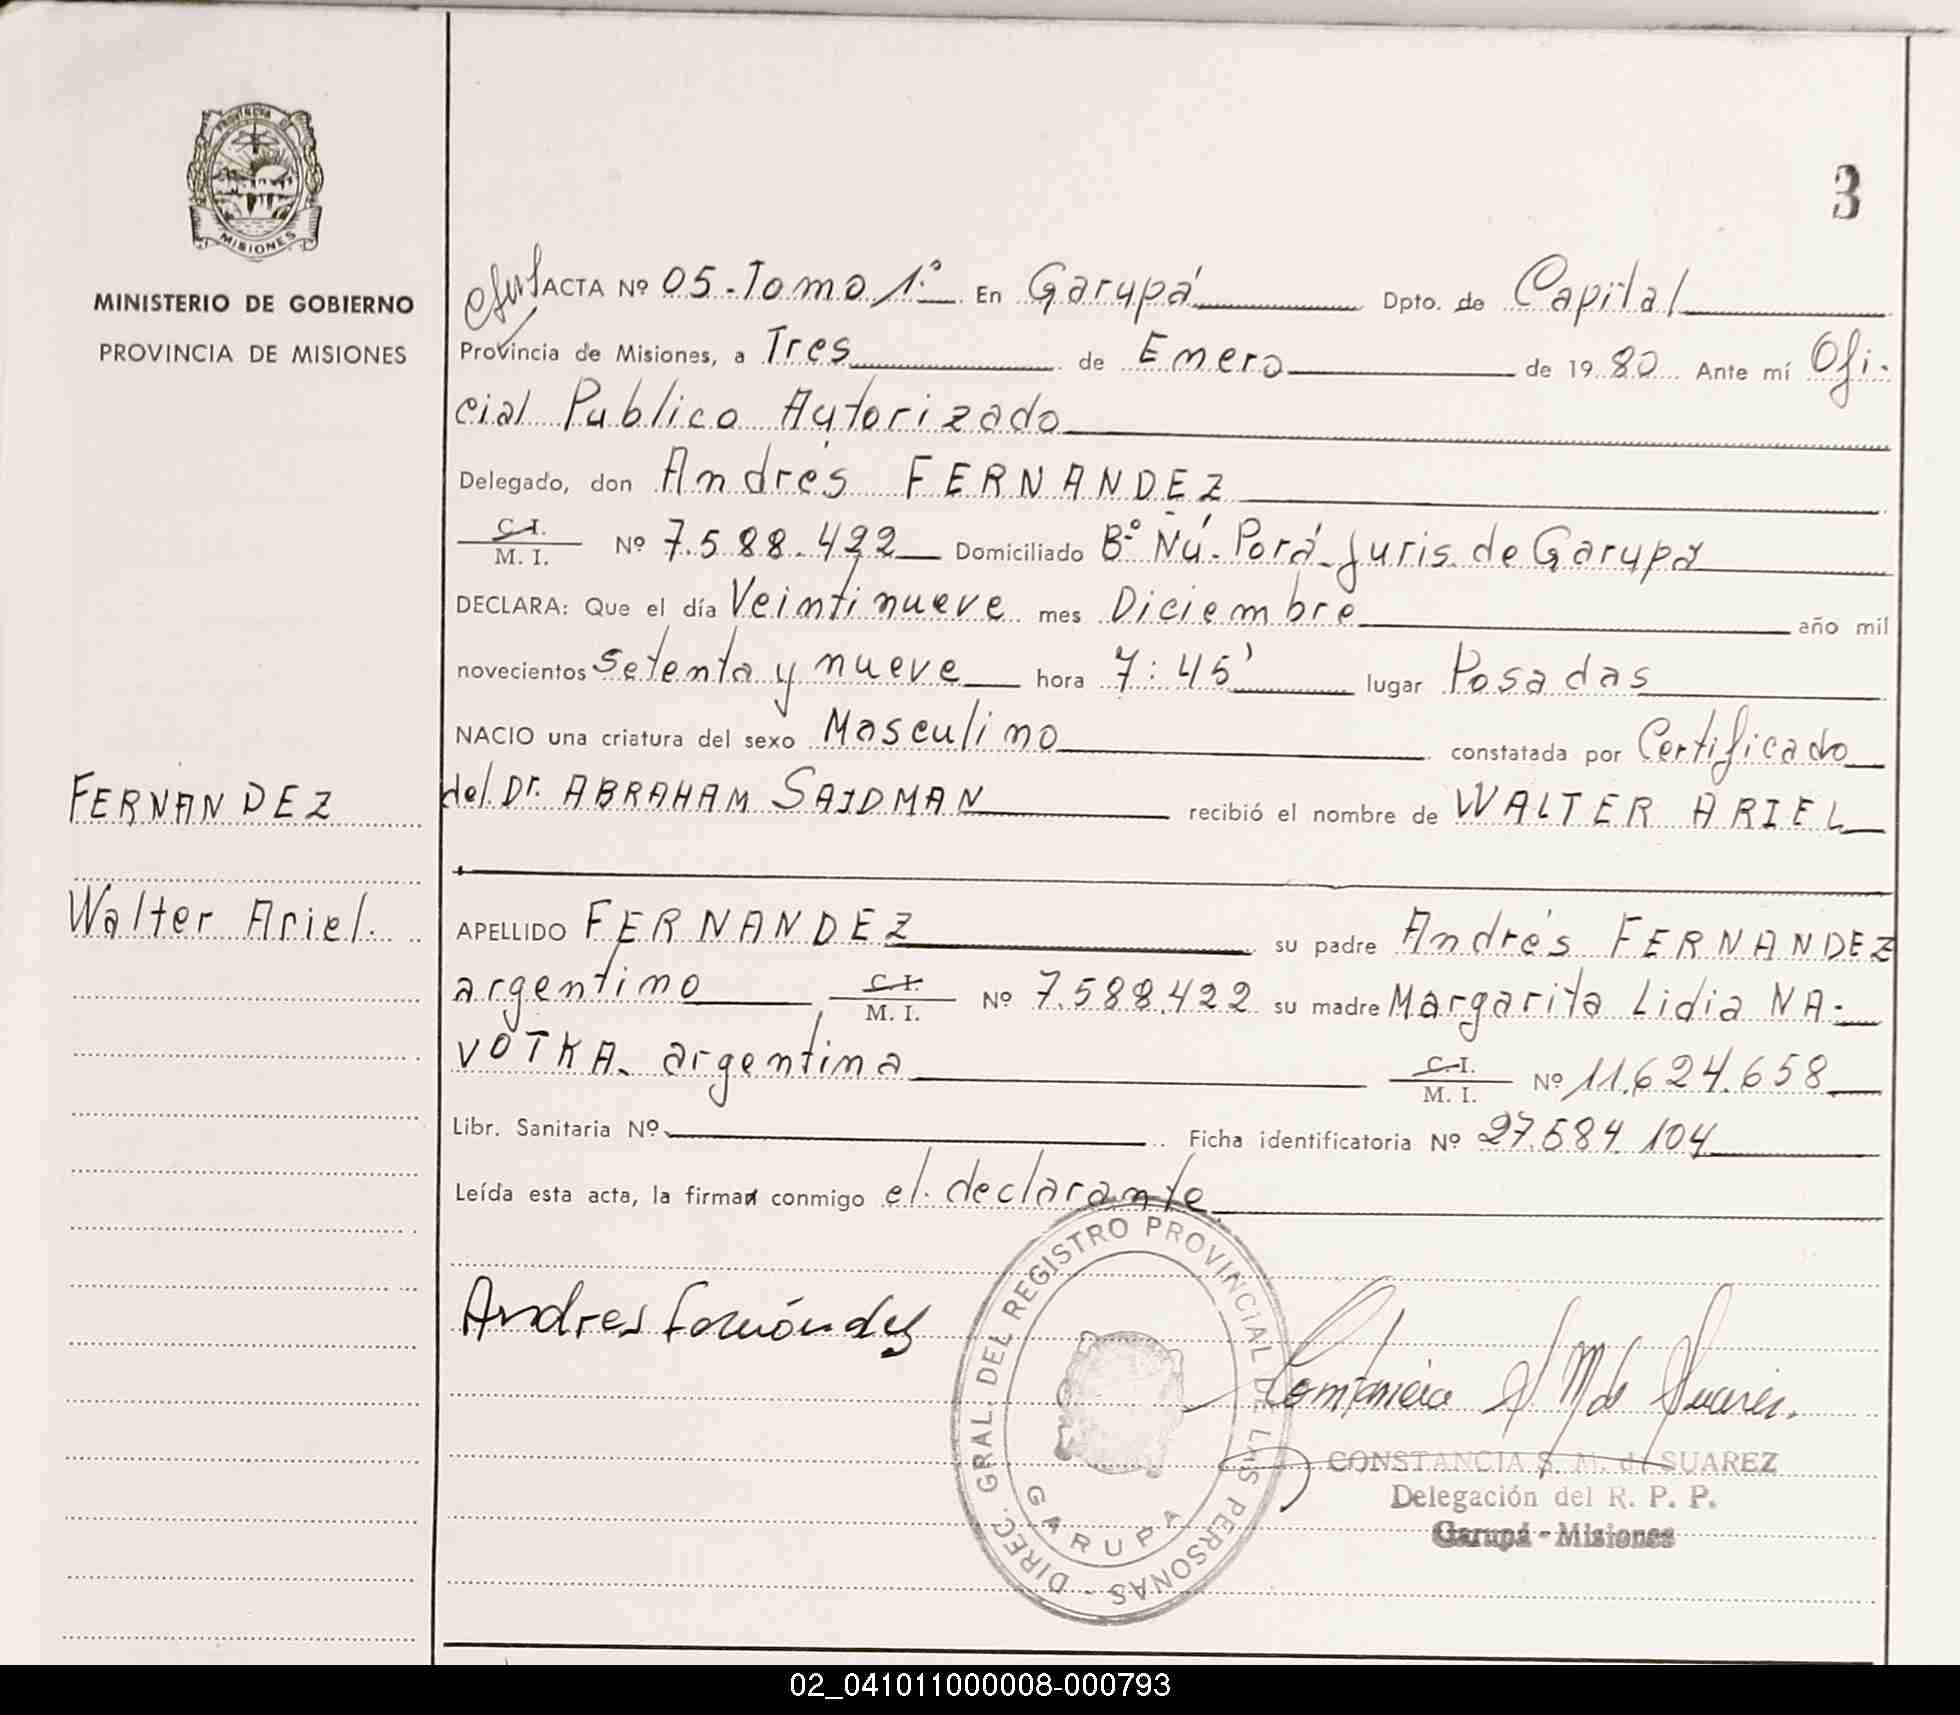 PROVINCIA DE
MISIONES
MINISTERIO DE GOBIERNO
PROVINCIA DE MISIONES
FERNANDEZ
Walter Ariel.
3
ACTA Nº 05 - Tomo 1º En Garupá Dpto. de Capital
Provincia de Misiones, a Tres de Enero de 1980 Ante mí Ofi-
cial Publico Autorizado
Delegado, don Andrés FERNANDEZ
C. I.
M. I. Nº 7.588.422 Domiciliado Bº Ñú-Porá-Juris. de Garupá
DECLARA: Que el día Veintinueve mes Diciembre año mil
novecientos setenta y nueve hora 7:45' lugar Posadas
NACIO una criatura del sexo Masculino constatada por Certificado
del Dr. ABRAHAM SAIDMAN recibió el nombre de WALTER ARIEL
APELLIDO FERNANDEZ su padre Andrés FERNANDEZ
argentino C. I. M. I. Nº 7.588.422 su madre Margarita Lidia NA-
VOTKA. argentina C. I. M. I. Nº 11.624.658
Libr. Sanitaria Nº Ficha identificatoria Nº 27.584.104
Leída esta acta, la firman conmigo el declarante
Andres Fernández
DIREC. GRAL. DEL REGISTRO PROVINCIAL DE LAS PERSONAS -
GARUPA
Constancia S M de Suarez.
CONSTANCIA S. M. de SUAREZ
Delegación del R. P. P.
Garupá - Misiones
02_041011000008-000793